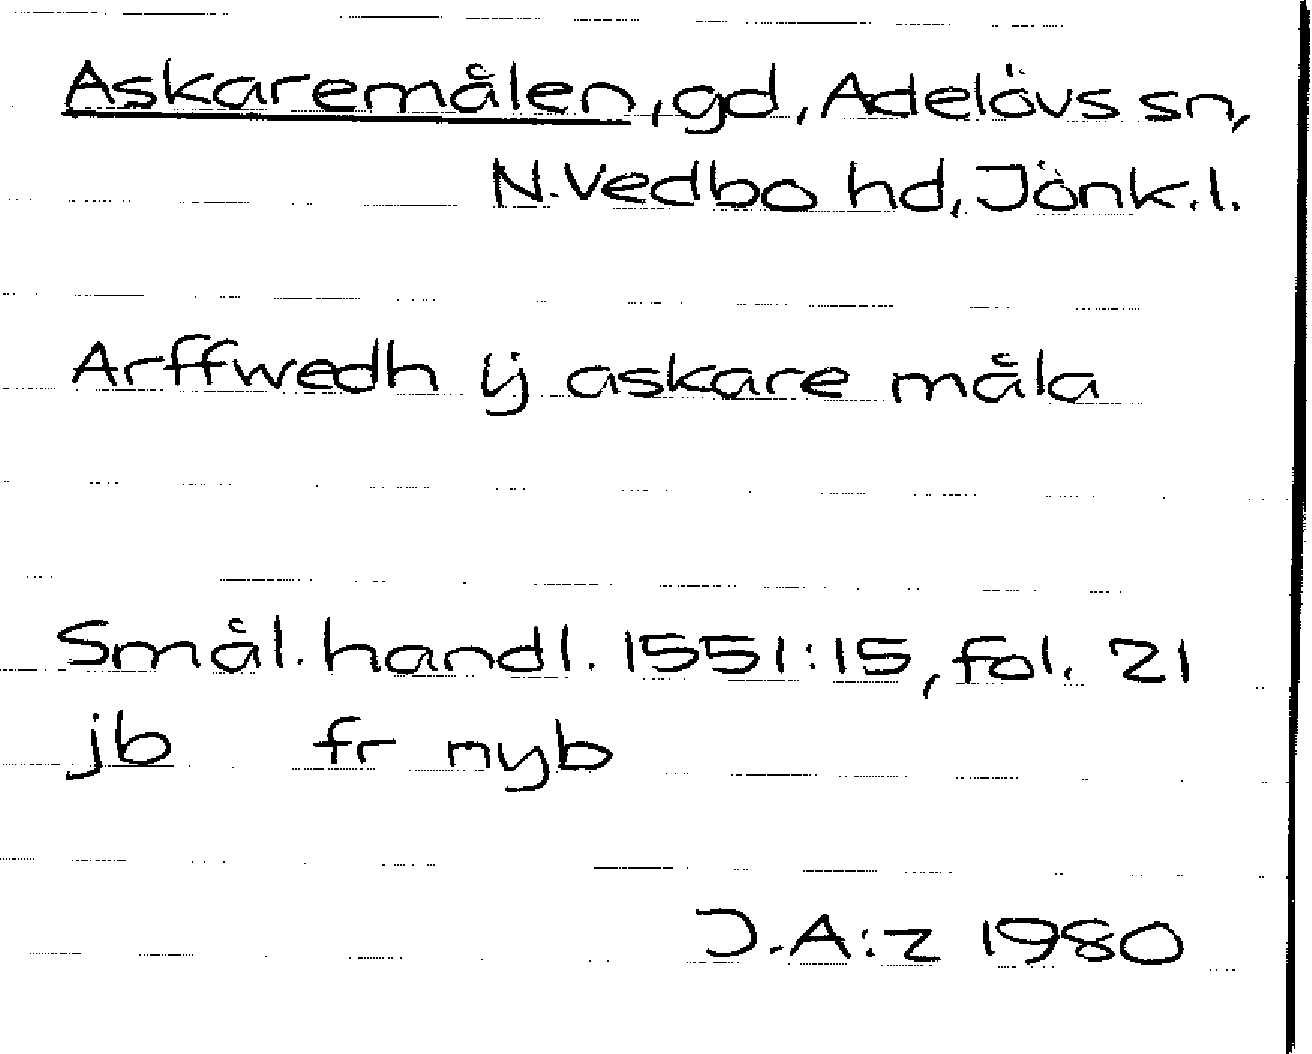 Askaremålen, gd, Adelövs sn,
N. Vedbo hd, Jönk. l.
Arffwedh ij askare måla
Smål. handl. 1551:15, fol. 21
jb fr nyb
J.A:z 1980